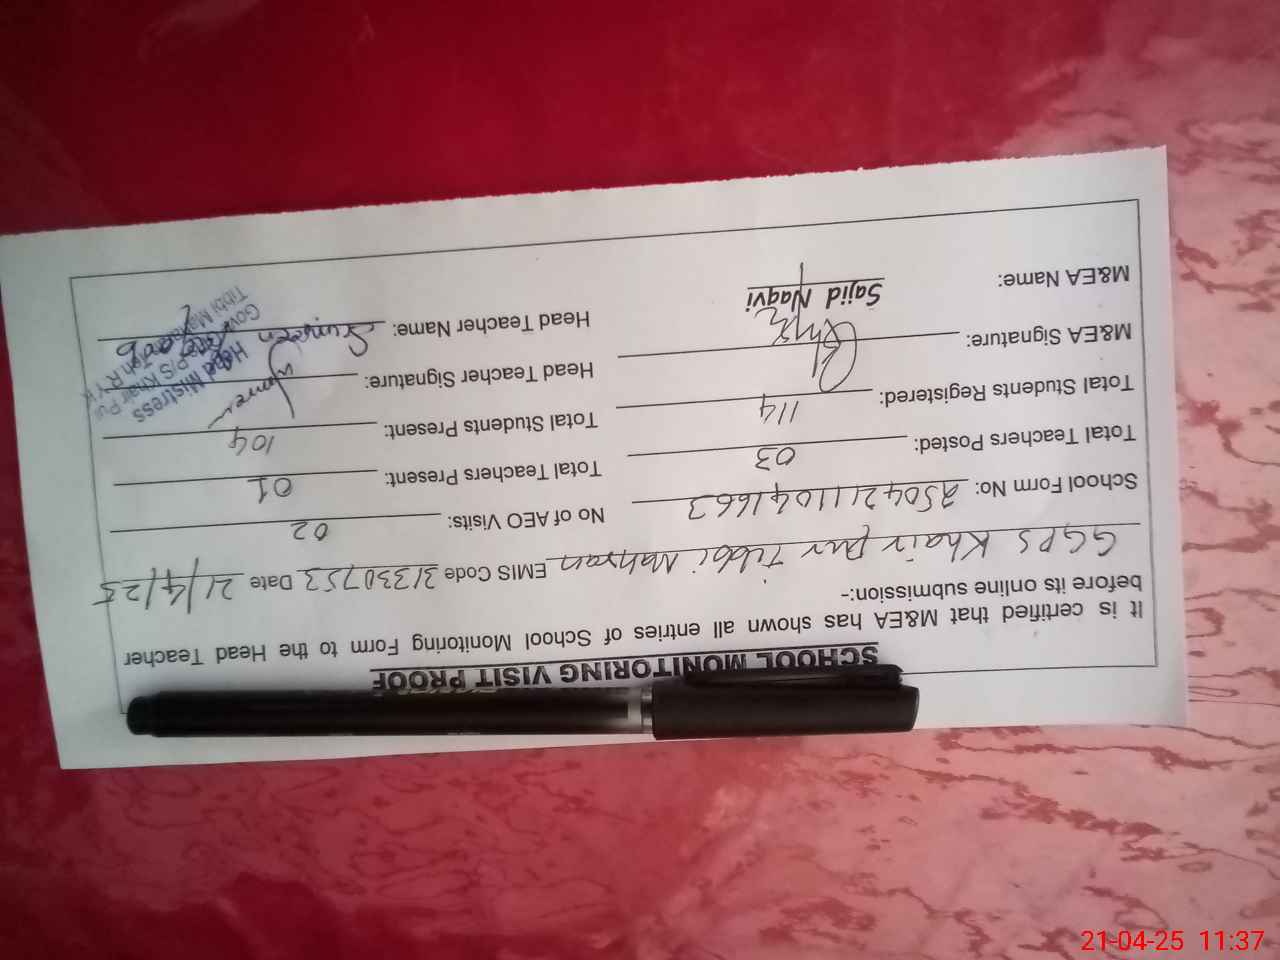 SCHOOL MONITORING VISIT PROOF
It is certified that M&EA has shown all entries of School Monitoring Form to the Head Teacher
before its online submission:-
GGPS Khair pur Tibbi Mahran EMIS Code 31330753 Date 21/4/25
School Form No: 25042111041663 No of AEO Visits: 02
Total Teachers Posted: 03 Total Teachers Present: 01
Total Students Registered: 114 Total Students Present: 104
M&EA Signature: Head Teacher Signature:
M&EA Name: Sajid Naqvi Head Teacher Name:
Head Mistress
P/S Khair Pur
21-04-25 11:37